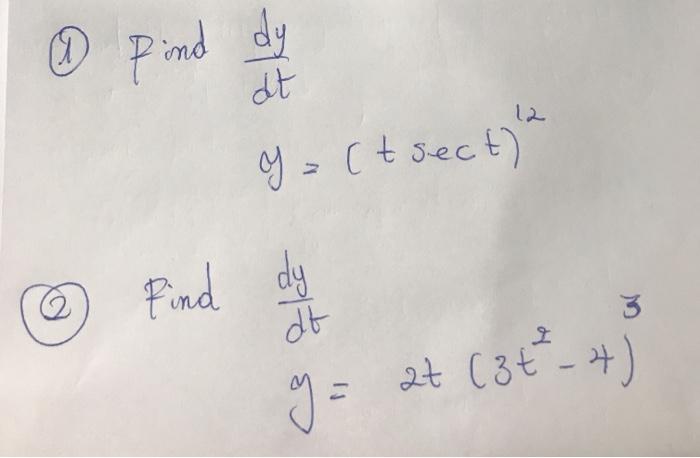 ① Find dy/dt
y = (t sec t)¹²
② Find dy/dt
y = 2t (3t² - 4)³